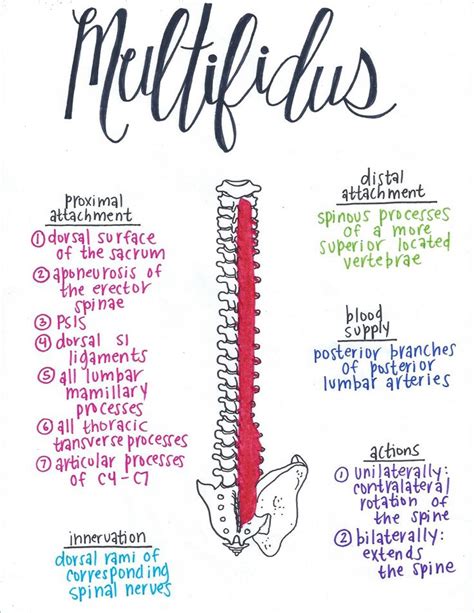 Multifidus
proximal
attachment
① dorsal surface
of the sacrum
② aponeurosis of
the erector
spinae
③ PSIS
④ dorsal SI
ligaments
⑤ all lumbar
mamillary
processes
⑥ all thoracic
transverse processes
⑦ articular processes
of C4-C7
innervation
dorsal rami of
corresponding
spinal nerves
distal
attachment
spinous processes
of a more
superior located
vertebrae
blood
supply
posterior branches
of posterior
lumbar arteries
actions
① unilaterally:
contralateral
rotation of
the spine
② bilaterally:
extends
the spine